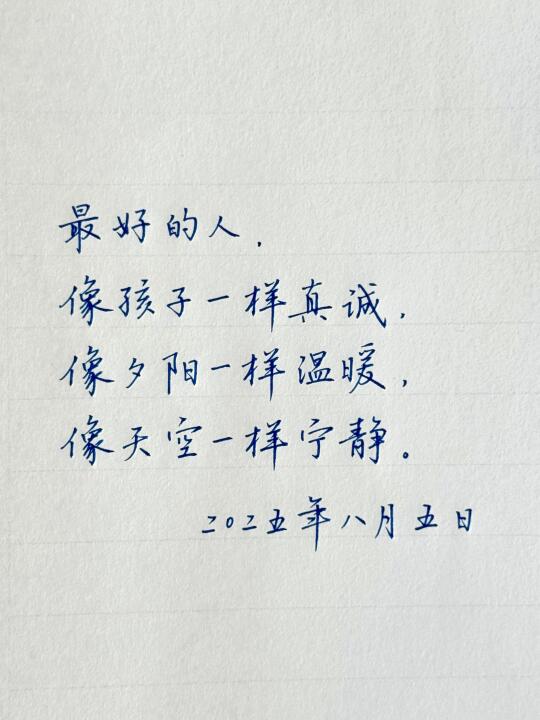 最好的人，
像孩子一样真诚，
像夕阳一样温暖，
像天空一样宁静。
二〇二五年八月五日